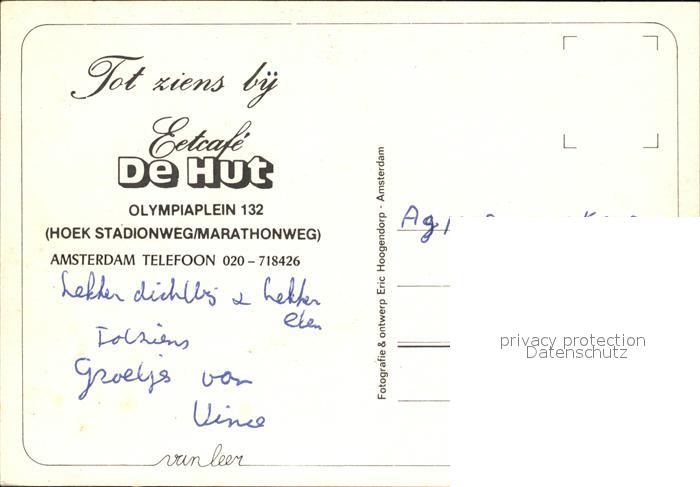 Tot ziens bij
Eetcafé
De Hut
OLYMPIAPLEIN 132
(HOEK STADIONWEG/MARATHONWEG)
AMSTERDAM TELEFOON 020 – 718426
Lekker dichtbij & Lekker
eten
Totziens
Groetjes van
Vince
van leer
Fotografie & ontwerp Eric Hoogendorp - Amsterdam
privacy protection
Datenschutz